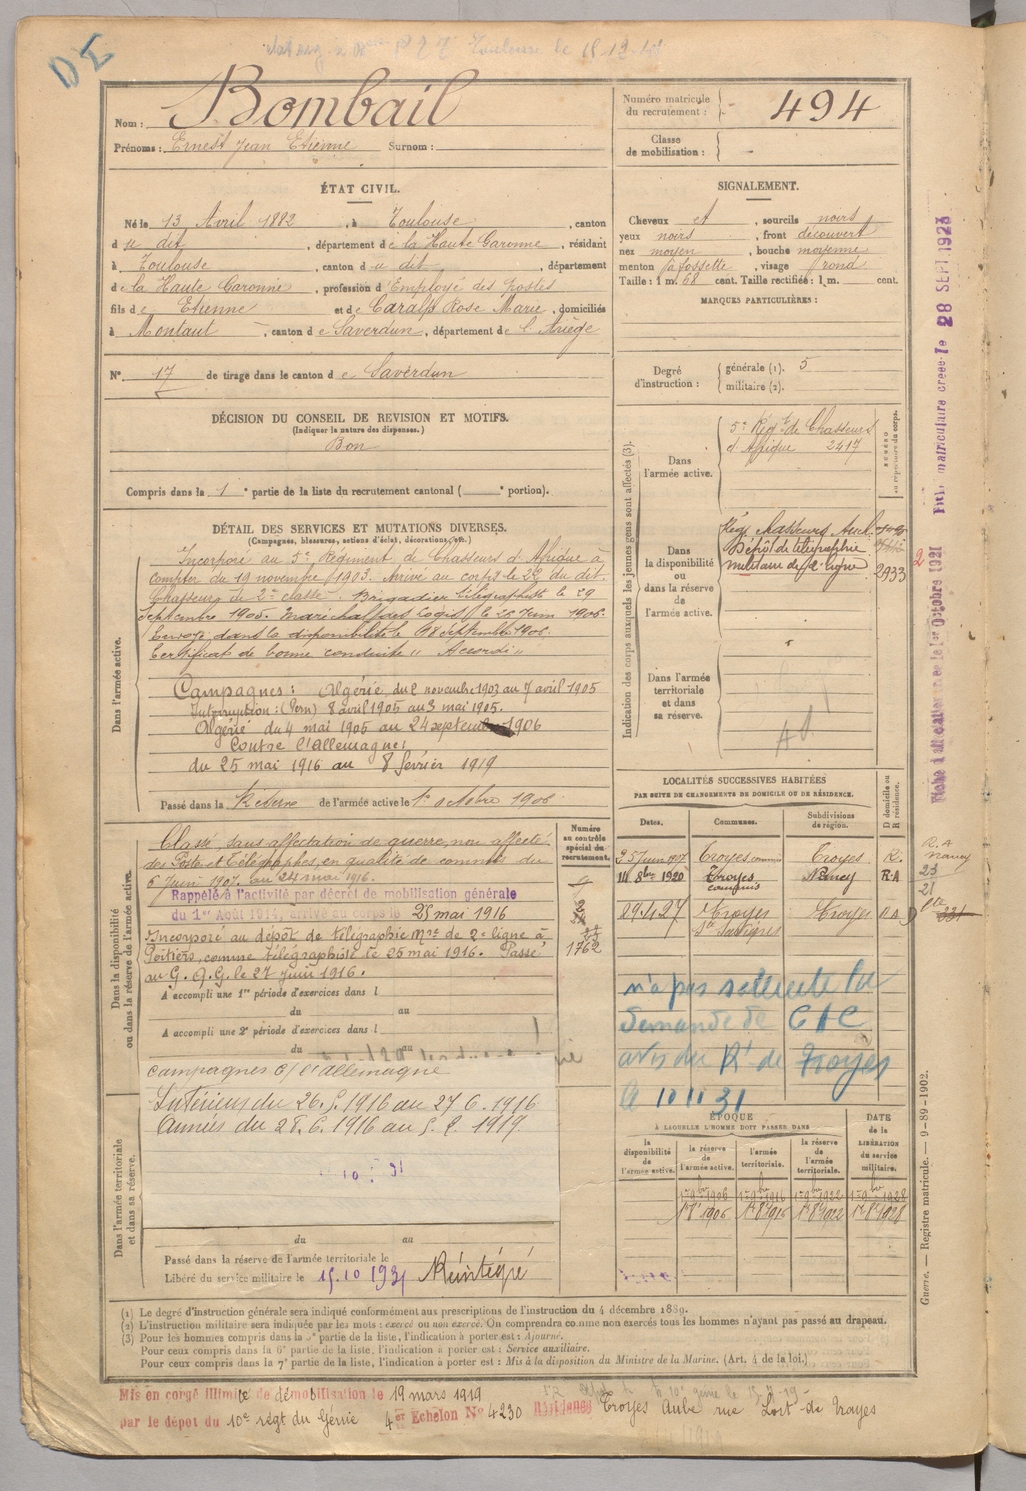 DE
Toulouse le 15-12-
Nom : Bombail
Prénoms : Ernest Jean Etienne Surnom :
Numéro matricule du recrutement : 494
Classe de mobilisation :
ÉTAT CIVIL.
Né le 13 Avril 1882, à Toulouse, canton
d u dit, département d e la Haute Garonne, résidant
à Toulouse, canton d u dit, département
d e la Haute Garonne, profession d'Employé des Postes
fils d e Etienne et d e Caralp Rose Marie, domiciliés
à Montaut, canton d e Saverdun, département d e l'Ariège
N° 17 de tirage dans le canton d e Saverdun
SIGNALEMENT.
Cheveux et, sourcils noirs
yeux noirs, front découvert
nez moyen, bouche moyenne
menton à fossette, visage rond
Taille : 1 m. 68 cent. Taille rectifiée : 1 m. cent.
MARQUES PARTICULIÈRES :
Degré d'instruction : générale (1). 5
militaire (2).
DÉCISION DU CONSEIL DE REVISION ET MOTIFS.
(Indiquer la nature des dispenses.)
Bon
Compris dans la 1e partie de la liste du recrutement cantonal ( e portion).
DÉTAIL DES SERVICES ET MUTATIONS DIVERSES.
(Campagnes, blessures, actions d'éclat, décorations, etc.)
Dans l'armée active.
Incorporé au 5e Régiment de Chasseurs d'Afrique à
compter du 19 novembre 1903. Arrivé au corps le 22 du dit.
Chasseur de 2e classe. Brigadier télégraphiste le 29
Septembre 1905. Maréchal des Logis le 25 Juin 1906.
Envoyé dans la disponibilité le 18 Septembre 1906.
Certificat de bonne conduite " Accordé "
Campagnes : Algérie, du 2 novembre 1903 au 7 avril 1905
Interruption : (Perm) 8 avril 1905 au 3 mai 1905.
Algérie du 4 mai 1905 au 24 septembre 1906
Contre l'Allemagne :
du 25 mai 1916 au 8 février 1919
Passé dans la Réserve de l'armée active le 1er octobre 1906
Indication des corps auxquels les jeunes gens sont affectés (3).
NUMÉRO au répertoire du corps.
Dans l'armée active.
5e Régt de Chasseurs
d'Afrique 2417
Dans la disponibilité ou dans la réserve de l'armée active.
Rég. Chasseurs Auch.
Dépôt de télégraphie
militaire de 2e ligne 2933
Dans l'armée territoriale et dans sa réserve.
Dans la disponibilité ou dans la réserve de l'armée active.
Numéro au contrôle spécial du recrutement.
Classé, sans affectation de guerre, non affecté
des Postes et Télégraphes, en qualité de commis du
6 Juin 1907. au 24 mai 1916.
Rappelé à l'activité par décret de mobilisation générale
du 1er Août 1914, arrivé au corps le 25 mai 1916
Incorporé au dépôt de télégraphie Mre de 2e ligne à
Poitiers, comme télégraphiste le 25 mai 1916. Passé
au G. Q. G. le 27 Juin 1916.
1762
A accompli une 1re période d'exercices dans l
du au
A accompli une 2e période d'exercices dans l
du au
campagnes c/ l'Allemagne
Intérieur du 26.5.1916 au 27.6.1916
Armées du 28.6.1916 au 5.2.1919.
Dans l'armée territoriale et dans sa réserve.
du au
Passé dans la réserve de l'armée territoriale le
Libéré du service militaire le 15.10 1931 Réintégré
LOCALITÉS SUCCESSIVES HABITÉES
PAR SUITE DE CHANGEMENTS DE DOMICILE OU DE RÉSIDENCE.
Dates. Communes. Subdivisions de région. D domicile ou R résidence.
25 Juin 1907 Troyes commis Troyes R.
14 8bre 1920 Troyes commis Nancy R.A
29.4.27 Troyes Troyes R A
R.A
Nancy
23
21
n'a pas sollicité la
demande de C/C
avis du Rt de Troyes
le 10 11 31
ÉPOQUE
À LAQUELLE L'HOMME DOIT PASSER DANS
la disponibilité de l'armée active.
la réserve de l'armée active.
l'armée territoriale.
la réserve de l'armée territoriale.
DATE de la LIBÉRATION du service militaire.
1er 9bre 1906 1er 9bre 1916 1er 9bre 1922 1er 9bre 1928
1er 8bre 1906 1er 8bre 1916 1er 8bre 1922 1er 8bre 1928
Fiche d'affectation créée le 1er Octobre 1921 Fiche matriculaire créée le 28 SEPT 1923
Guerre. — Registre matricule. — 9-89-1902.
(1) Le degré d'instruction générale sera indiqué conformément aux prescriptions de l'instruction du 4 décembre 1889.
(2) L'instruction militaire sera indiquée par les mots : exercé ou non exercé. On comprendra comme non exercés tous les hommes n'ayant pas passé au drapeau.
(3) Pour les hommes compris dans la 5e partie de la liste, l'indication à porter est : Ajourné.
Pour ceux compris dans la 6e partie de la liste, l'indication à porter est : Service auxiliaire.
Pour ceux compris dans la 7e partie de la liste, l'indication à porter est : Mis à la disposition du Ministre de la Marine. (Art. 4 de la loi.)
Mis en congé illimité de démobilisation le 19 mars 1919
par le dépôt du 10e régt du Génie 4er Echelon N° 4230 Résidence Troyes Aube rue